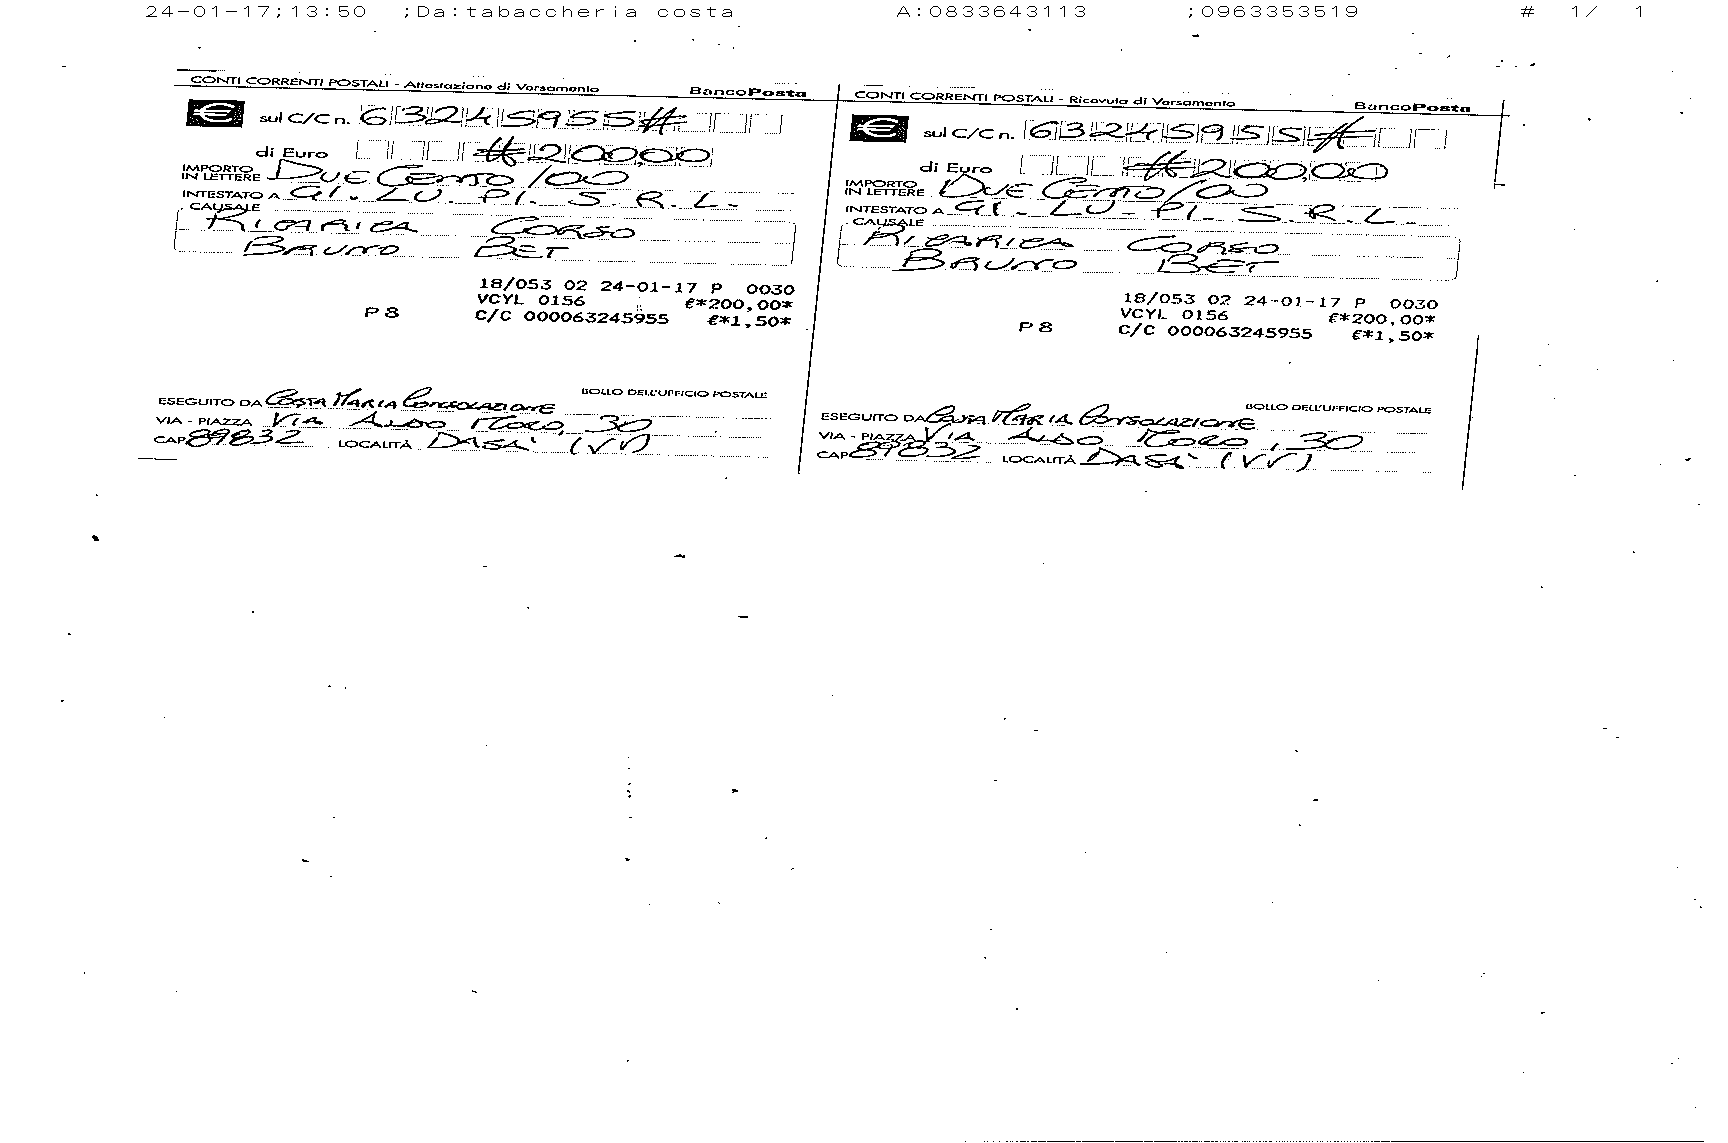 24-01-17;13:50 ;Da:tabaccheria costa A:0833643113 ;0963353519 # 1/ 1
CONTI CORRENTI POSTALI - Attestazione di Versamento BancoPosta
€ sul C/C n. 63245955#
di Euro #200,00
IMPORTO IN LETTERE DUE CENTO/00
INTESTATO A GI. LU. PI. S.R.L.
CAUSALE
RICARICA CORSO
BRUNO BET
18/053 02 24-01-17 P 0030
VCYL 0156 €*200,00*
P 8 C/C 000063245955 €*1,50*
BOLLO DELL'UFFICIO POSTALE
ESEGUITO DA COSTA MARIA CONSOLAZIONE
VIA - PIAZZA VIA ALDO MORO, 30
CAP 89832 LOCALITÀ DASA' (VV)
CONTI CORRENTI POSTALI - Ricevuta di Versamento BancoPosta
€ sul C/C n. 63245955#
di Euro #200,00
IMPORTO IN LETTERE DUE CENTO/00
INTESTATO A GI. LU. PI. S.R.L.
CAUSALE
RICARICA CORSO
BRUNO BET
18/053 02 24-01-17 P 0030
VCYL 0156 €*200,00*
P 8 C/C 000063245955 €*1,50*
BOLLO DELL'UFFICIO POSTALE
ESEGUITO DA COSTA MARIA CONSOLAZIONE
VIA - PIAZZA VIA ALDO MORO, 30
CAP 89832 LOCALITÀ DASA' (VV)